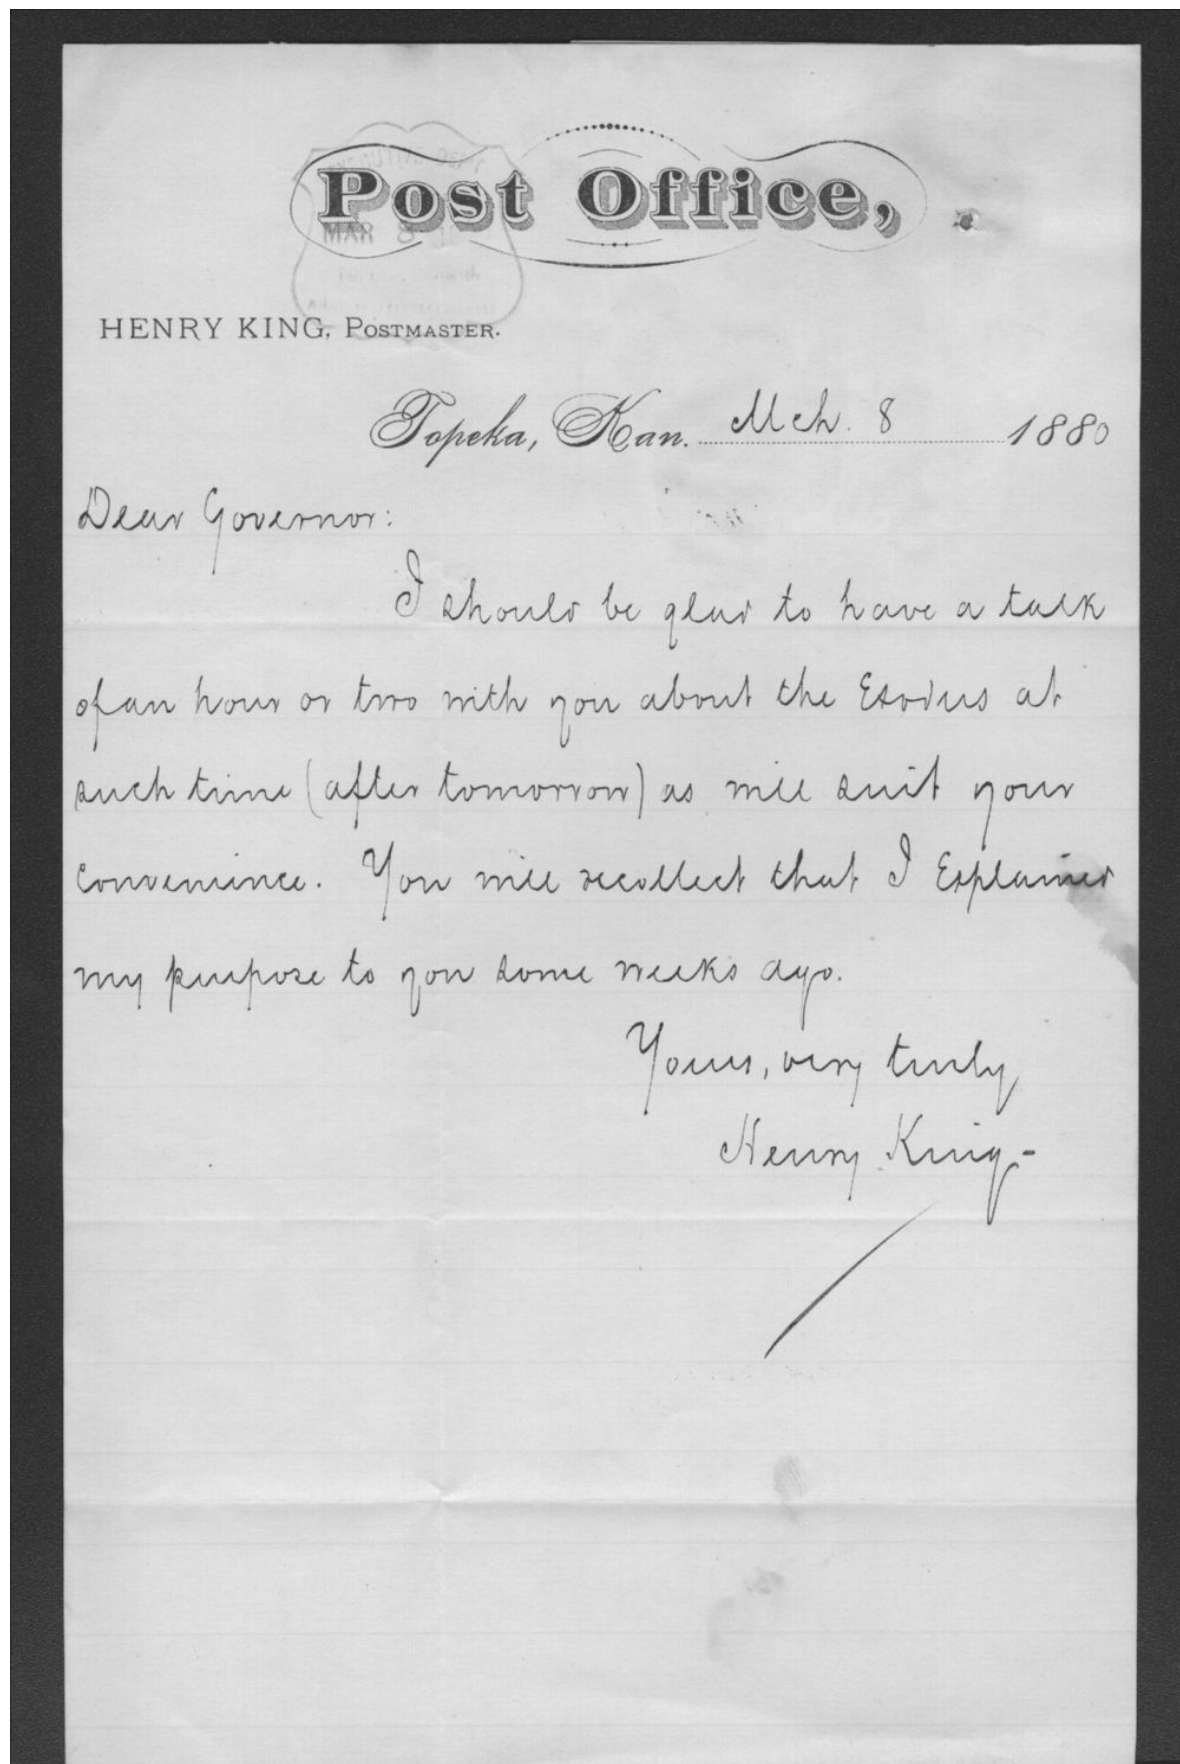 Post Office,
MAR 8
HENRY KING, POSTMASTER.
Topeka, Kan. Mch. 8 1880
Dear Governor:
I should be glad to have a talk
of an hour or two with you about the Exodus at
such time (after tomorrow) as will suit your
convenience. You will recollect that I Explained
my purpose to you some weeks ago.
Yours, very truly
Henry King-